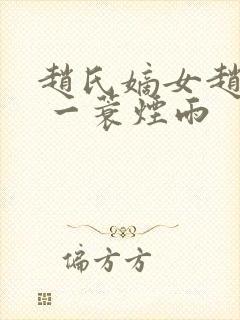 趙氏嫡女趙
一蓑煙雨
偏方方